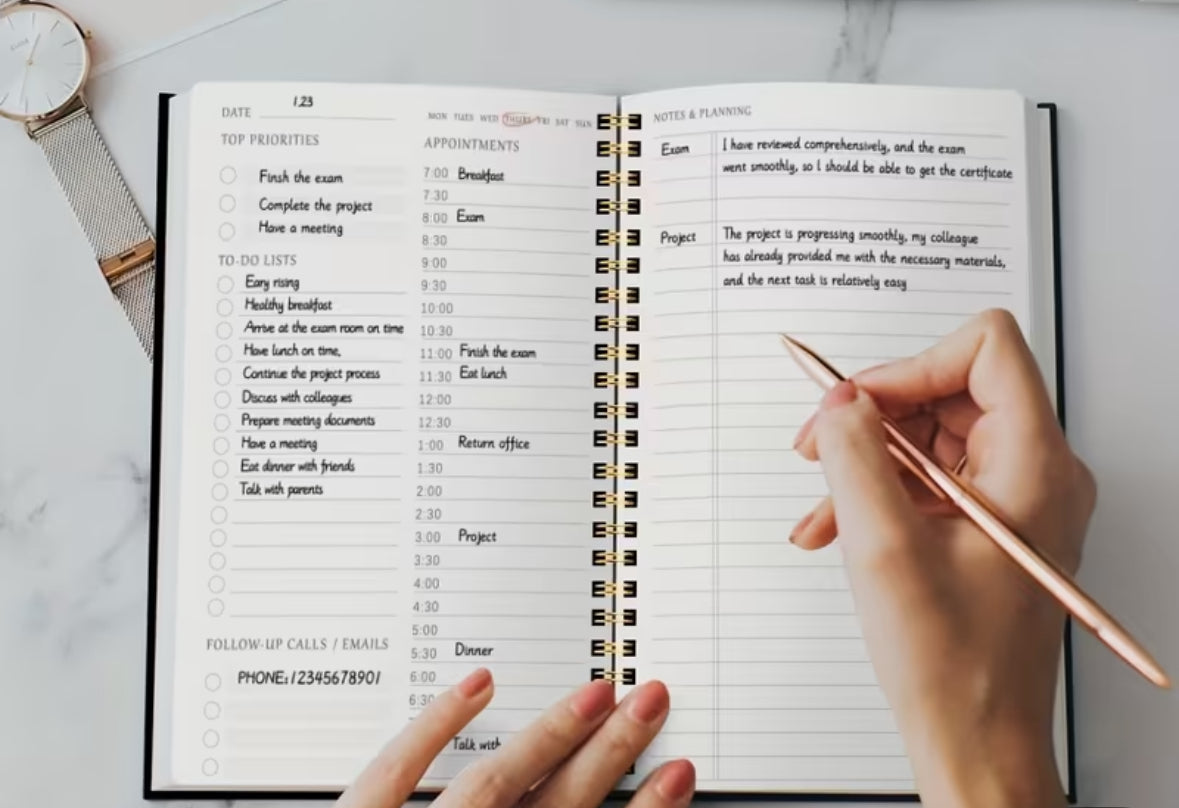 DATE 1.23
MON TUES WED THURS FRI SAT SUN
TOP PRIORITIES
Finsh the exam
Complete the project
Have a meeting
TO-DO LISTS
Eary rising
Healthy breakfast
Arrive at the exam room on time
Have lunch on time,
Continue the project process
Discuss with colleagues
Prepare meeting documents
Have a meeting
Eat dinner with friends
Talk with parents
FOLLOW-UP CALLS / EMAILS
PHONE:12345678901
APPOINTMENTS
7:00 Breakfast
7:30
8:00 Exam
8:30
9:00
9:30
10:00
10:30
11:00 Finish the exam
11:30 Eat lunch
12:00
12:30
1:00 Return office
1:30
2:00
2:30
3:00 Project
3:30
4:00
4:30
5:00
5:30 Dinner
6:00
6:30
Talk with
NOTES & PLANNING
Exam I have reviewed comprehensively, and the exam
went smoothly, so I should be able to get the certificate
Project The project is progressing smoothly, my colleague
has already provided me with the necessary materials,
and the next task is relatively easy